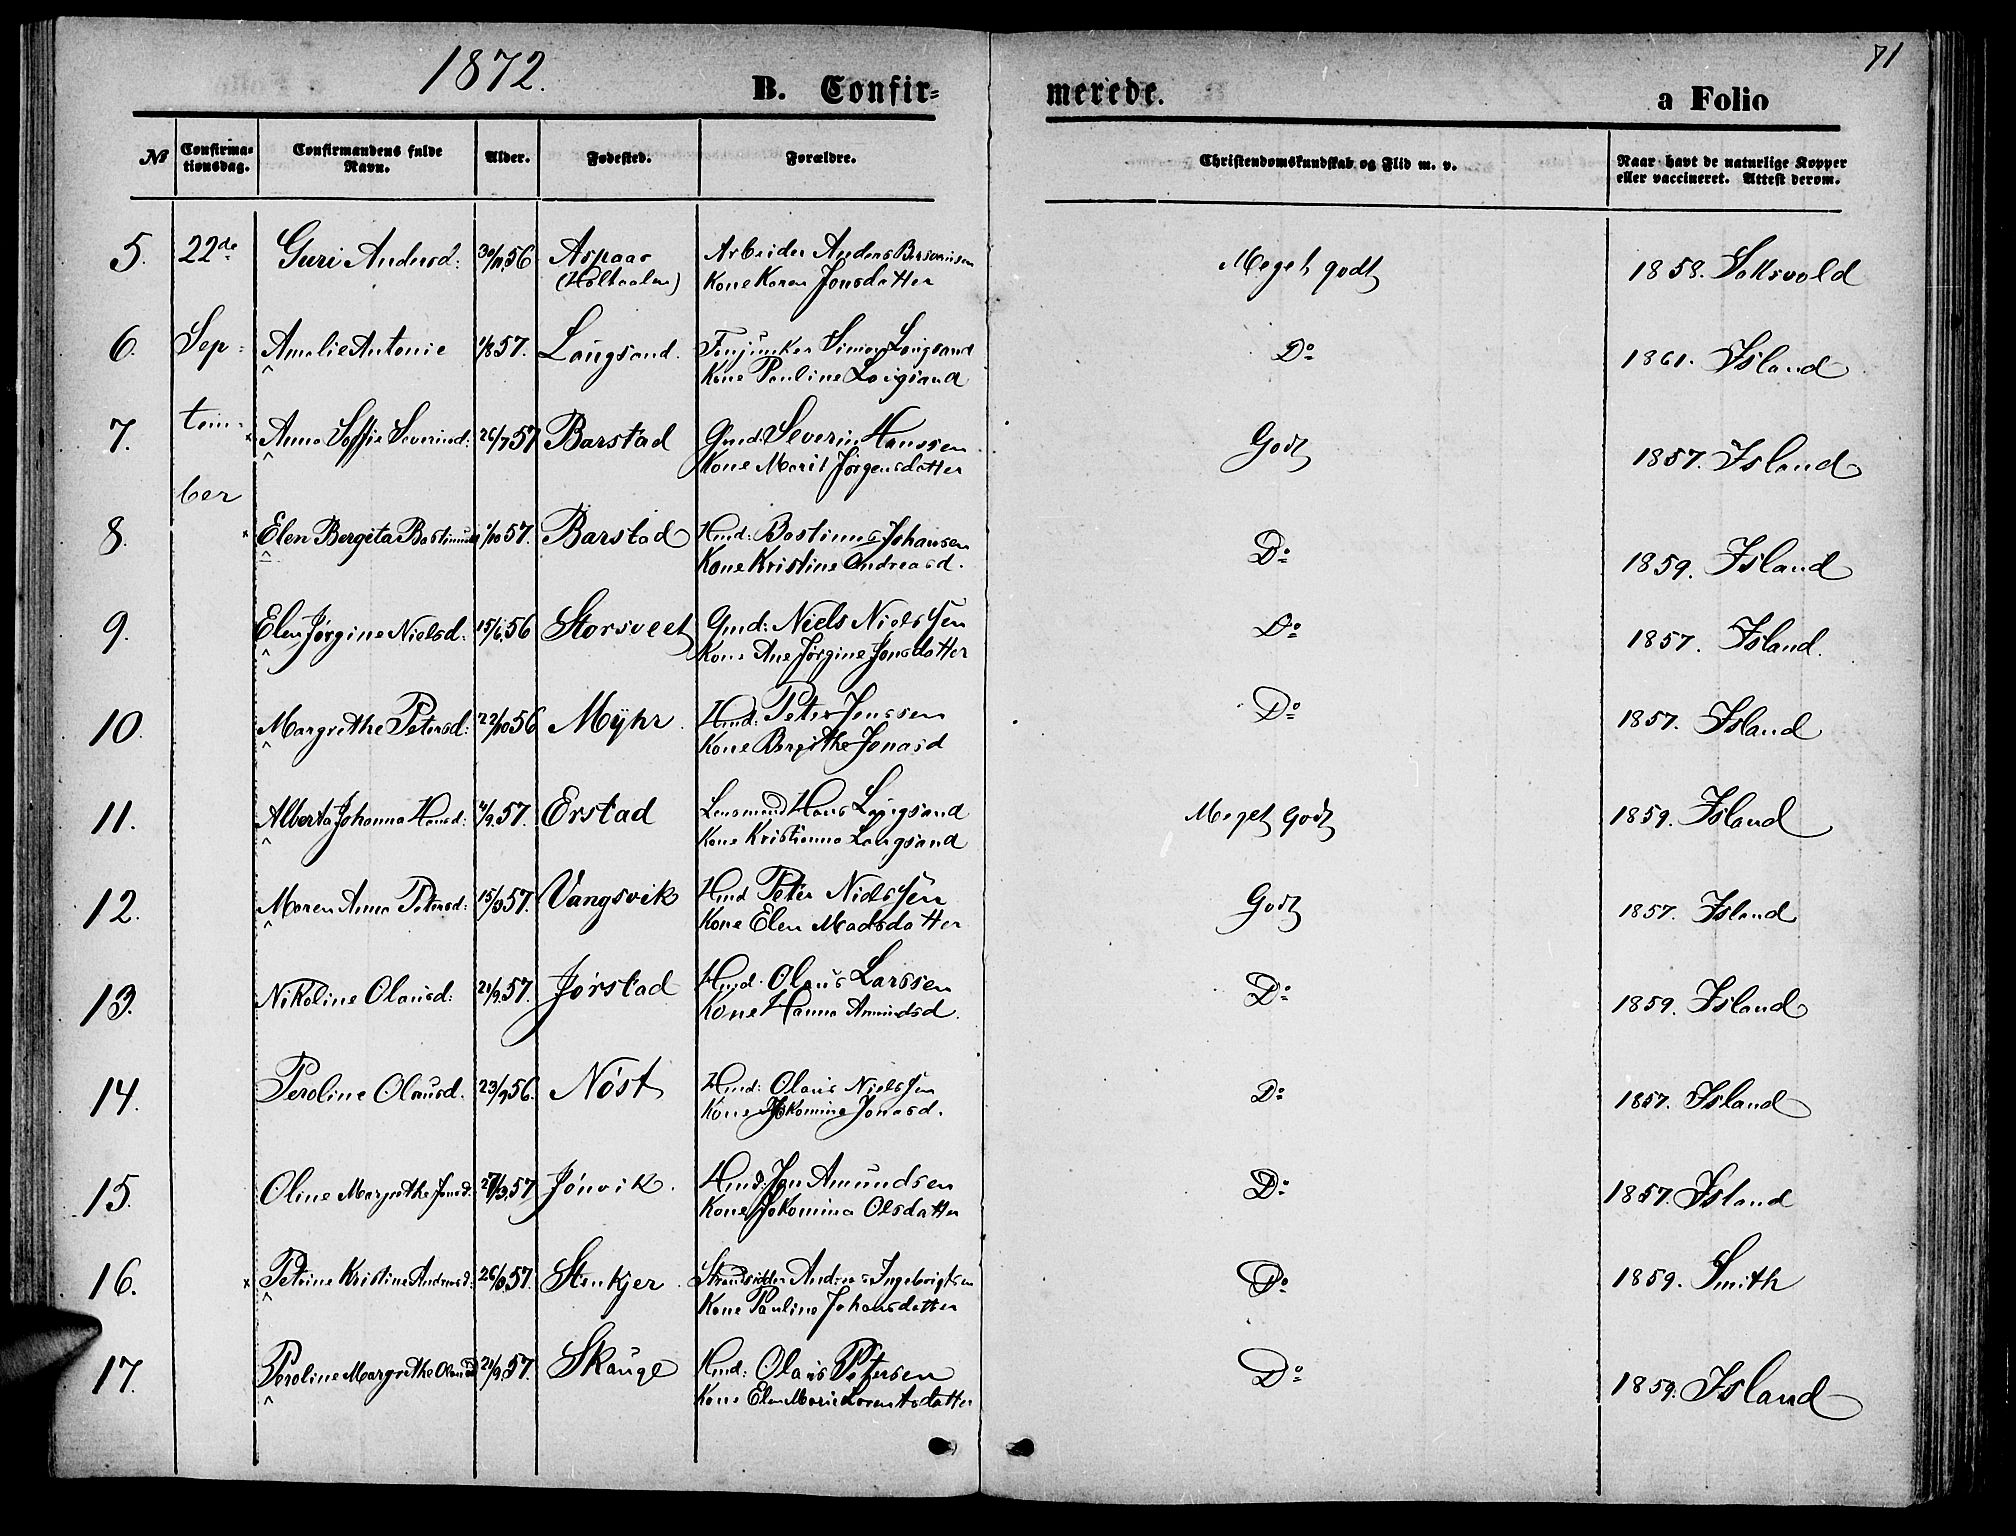 1872.
71
B. Confir-
merede.
a Folio
№
Confirma-
tionsdag.
Confirmandens fulde
Navn.
Alder.
Fødested.
Forældre.
Christendomskundskab og Flid m. v.
Naar havt de naturlige Kopper
eller vaccineret. Attest derom.
5. 22de Guri Andersd: 56 Aspaas Arbeider Anders Meget godt 1858.
(Holtaalen) Kone Karen Jonsdatter
6. Sep- Amalie Antonie 1/8 57. Langsand. Simon Langsand Do 1861. Island
Kone Pauline Langsand
7. tem- Anna Soffie Severinsd: 26/7 57 Barstad Gmd: Severin Hanssen Godt 1857. Island
Kone Marit Jørgensdatter
ber
8. Elen Bergita 1/10 57. Barstad Hmd: Bastinus Johansen Do 1859. Island
Kone Kristine Andreasd.
9. Elen Jørgine Nielsd: 15/6 56 Storsveet Gmd: Niels Nielssen Do 1857. Island.
Kone Ane Jørgine Jonsdatter
10. Margrethe Petersd: 22/10 56 Myhr. Hmd: Peter Jenssen Do 1857. Island
Kone Bergithe Jonasd
11. Alberta Johanna Hansd: 4/9 57. Erstad Lensmand Hans Langsand Meget godt 1859. Island
Kone Kristianna Langsand
12. Maren Anna Petersd: 57. Vangsvik Hmd Peter Nielssen Godt 1857. Island
Kone Elen Madsdatter
13. Nikoline Olausd: 57. Jørstad Hmd. Olaus Larssen Do 1859. Island
Kone Hanna Amundsd.
14. Peroline Olausd. 56. Nøst Hmd: Olaus Nielssen Do 1857. Island
Kone Jokomine Jonasd.
15. Oline Margrethe Jonsd. 57. Jønvik. Hmd: Jon Amundsen Do 1857. Island
Kone Jokomina Olsdatter
16. Petrine Kristine Andreasd. 57. Stenkjer. Strandsidder Andreas Ingebrigtsen Do 1859. Smith
Kone Pauline Johansdatter
17. Peroline Margrethe Olausd 57. Skauge Hmd: Olaus Petersen Do 1859. Island
Kone Elen Marie Lorentsdatter